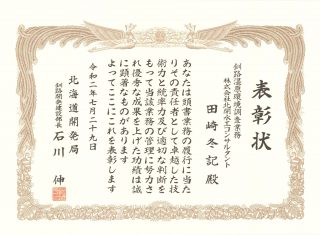 表彰状
釧路湿原環境調査業務
株式会社北開水工コンサルタント
田崎冬記殿
あなたは頭書業務の履行に当た
りその責任者として卓越した技
術力と統率力及び適切な判断を
もって当該業務の管理に努力さ
れ優秀な成果を上げた功績は誠
に顕著なものがあります
よってここにこれを表彰します
令和二年七月二十九日
北海道開発局
釧路開発建設部長 石川伸